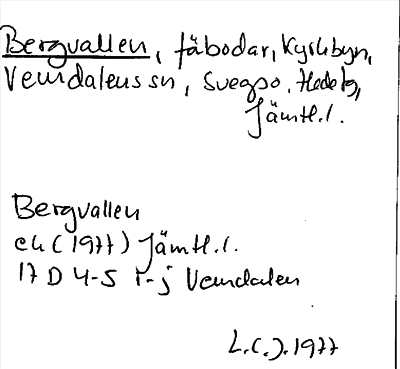 Bergvallen, fäbodar, Kyrkbyn,
Vemdalens sn, Svegso, Hede tg,
Jämtl.l.
Bergvallen
ek (1977) Jämtl.l.
17 D 4-5 i-j Vemdalen
L.C.J. 1977